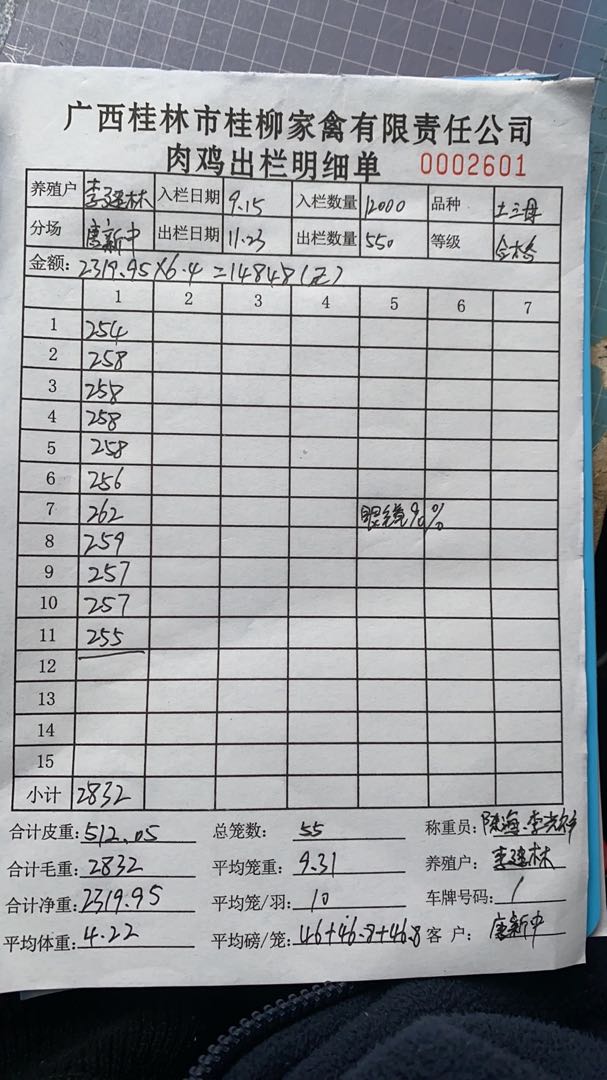 广西桂林市桂柳家禽有限责任公司
肉鸡出栏明细单 0002601
养殖户 李建林 入栏日期 9.15 入栏数量 12000 品种 土三母
分场 唐新中 出栏日期 11.23 出栏数量 550 等级 合格
金额: 2319.95×6.4=14848(元)
1 2 3 4 5 6 7
1 254
2 258
3 258
4 258
5 258
6 256
7 262 90%
8 259
9 257
10 257
11 255
12
13
14
15
小计 2832
合计皮重: 512.05 总笼数: 55 称重员: 陈海.李
合计毛重: 2832 平均笼重: 9.31 养殖户: 李建林
合计净重: 2319.95 平均笼/羽: 10 车牌号码: /
平均体重: 4.22 平均磅/笼: 46+46.8+46.8 客 户: 唐新中